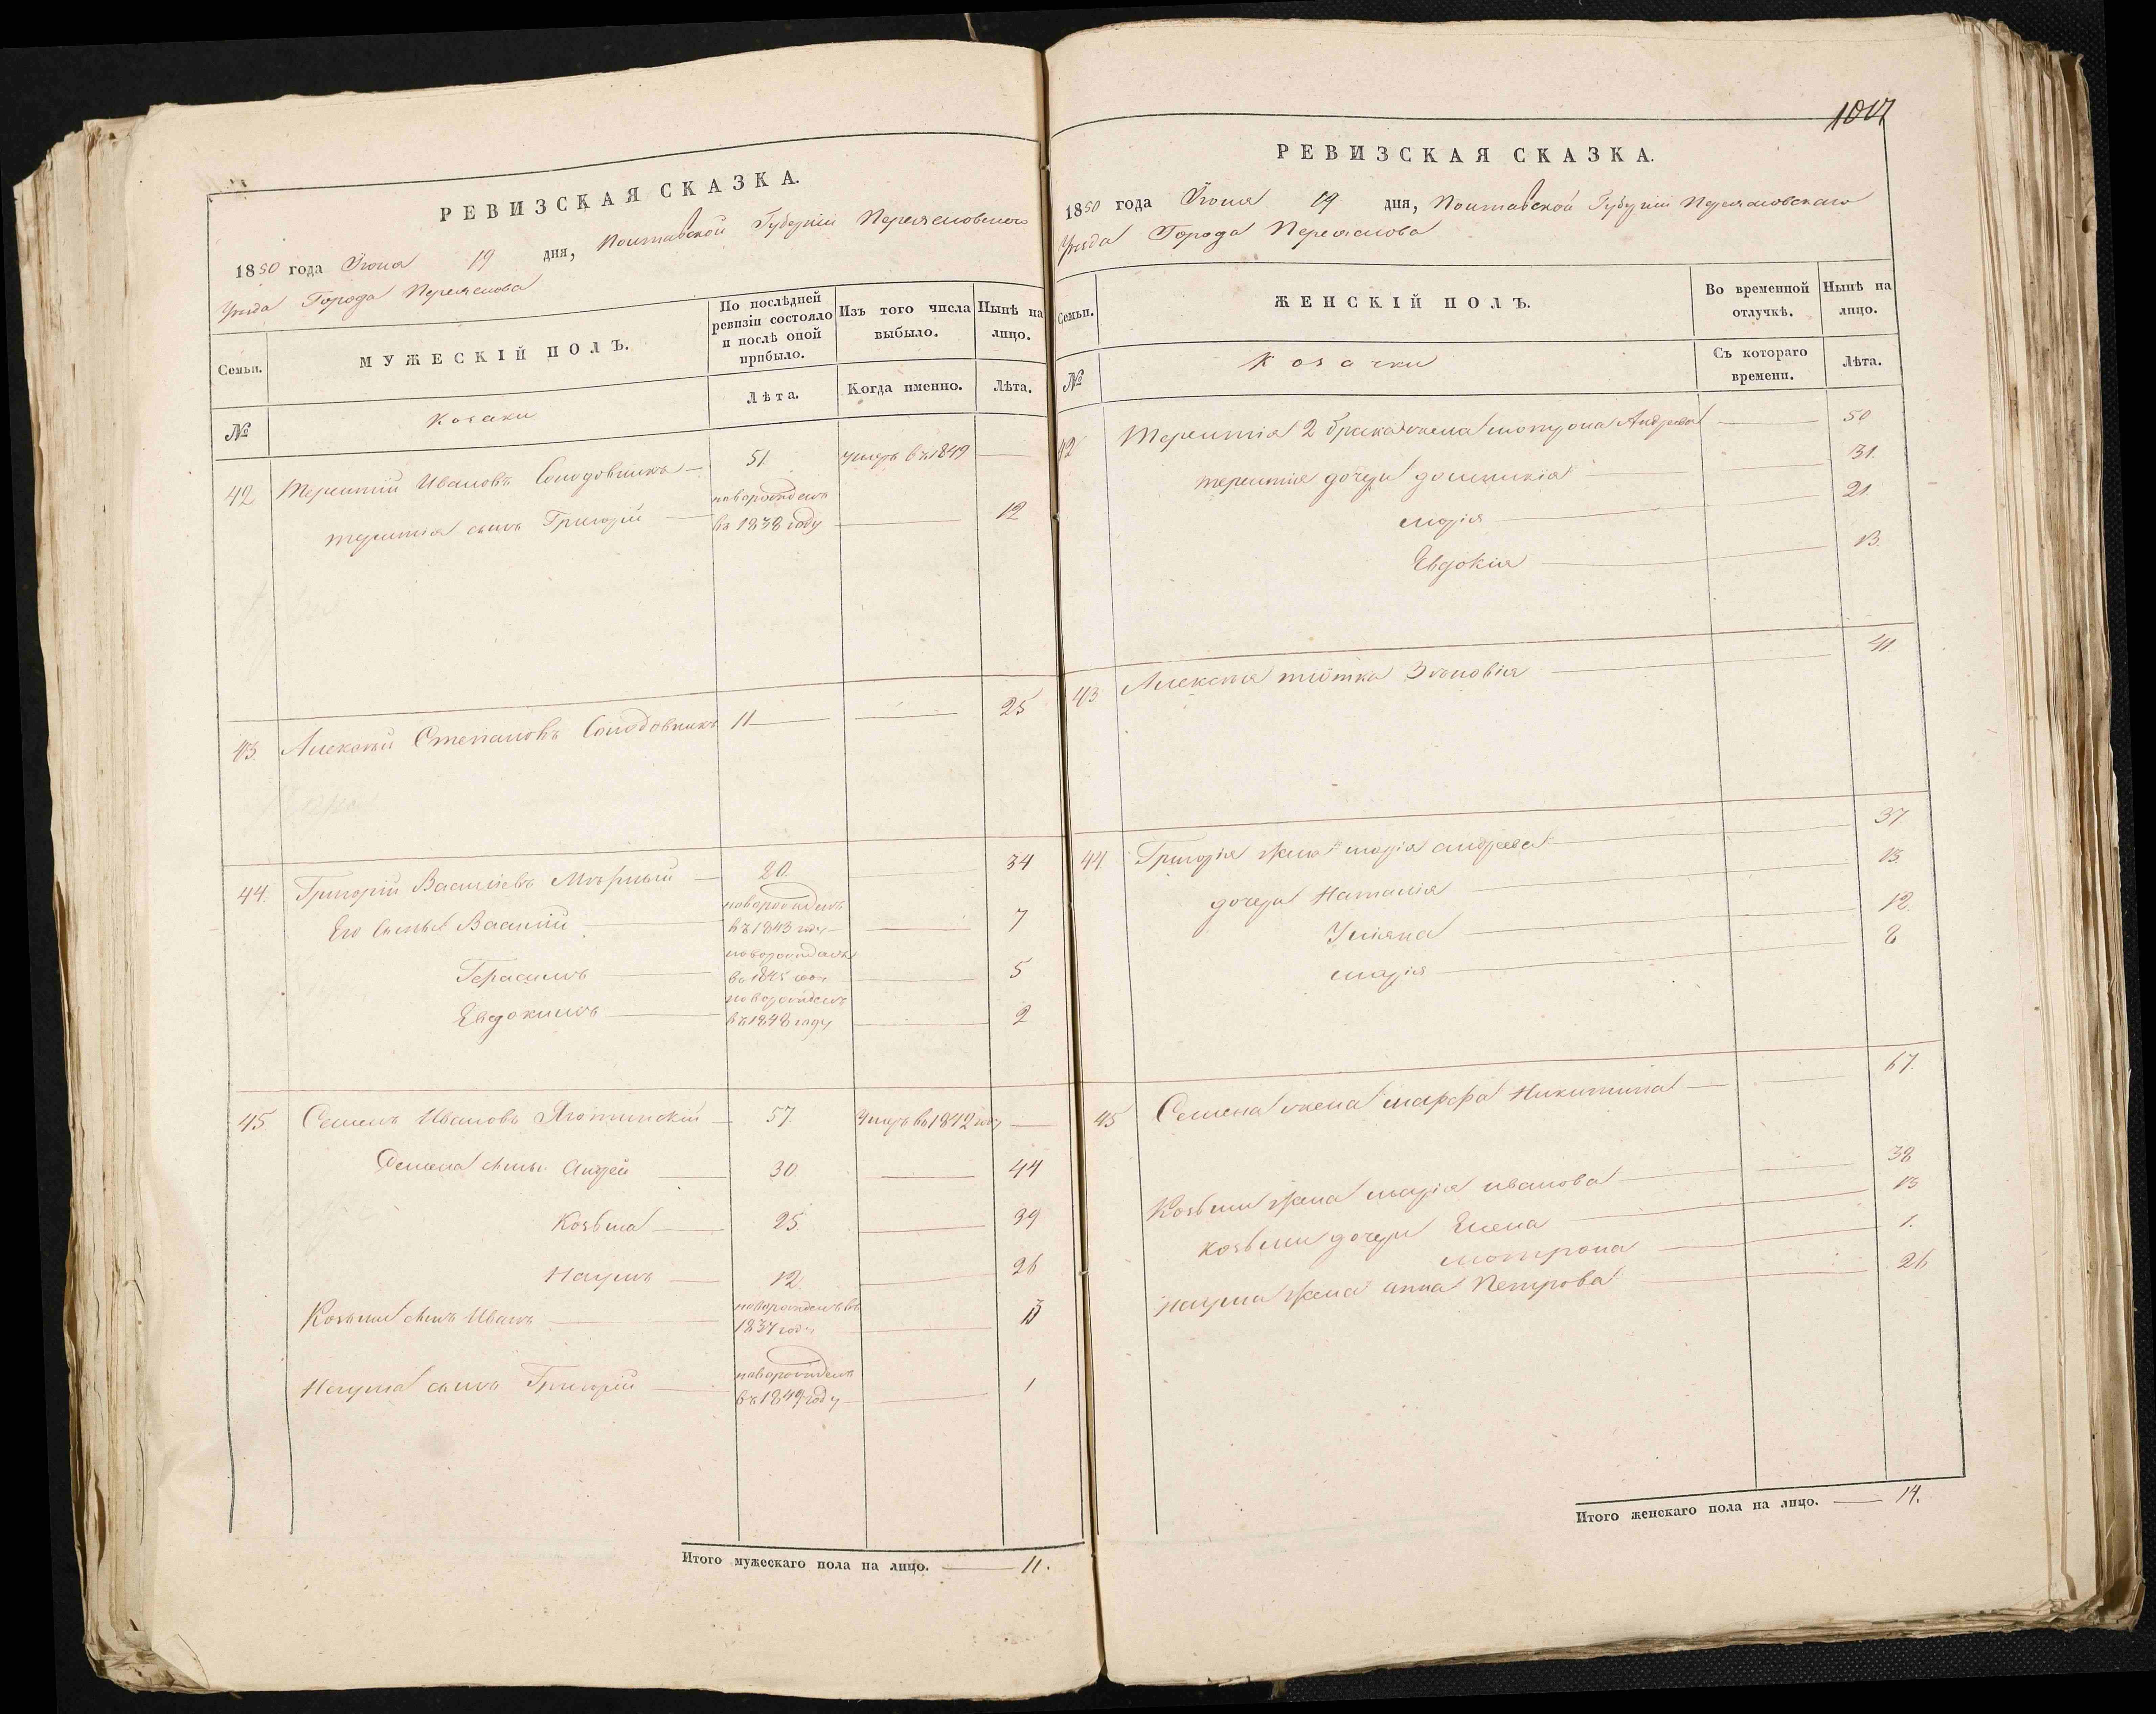 РЕВИЗСКАЯ СКАЗКА.
1850 года Іюня 19 дня, Полтавской Губерніи Переясловского
Уѣзда Города Переяслова
Семьи.
МУЖЕСКІЙ ПОЛЪ.
По послѣдней ревизіи состояло и послѣ оной прибыло.
Изъ того числа выбыло.
Нынѣ на лицо.
№
Козаки
Лѣта.
Когда именно.
Лѣта.
42 Терентій Ивановъ Солодовникъ 51 умеръ въ 1849
Терентія сынъ Григорій новорожденъ въ 1838 году 12
43. Алексѣй Степановъ Солодовникъ 11 25
44. Григорій Васильевъ Мѣрный 20. 34
Его сынья Василій новорожденъ въ 1843 году 7
Герасимъ новорожденъ въ 1845 году 5
Евдокимъ новорожденъ въ 1848 году 2
45 Семенъ Ивановъ Яготинскій 57. Умеръ въ 1842 году
Семена сыны Андрей 30. 44
Козьма 25 39
Наумъ 12. 26
Козьмы сынъ Иванъ новорожденъ въ 1837 году 13
Наума сынъ Григорій новорожденъ въ 1849 году 1
Итого мужескаго пола на лицо. 11.
РЕВИЗСКАЯ СКАЗКА.
1850 года Іюня 19 дня, Полтавской Губерніи Переясловскаго
Уѣзда Города Переяслова
Семьи.
ЖЕНСКІЙ ПОЛЪ.
Во временной отлучкѣ.
Нынѣ на лицо.
№
Козачки
Съ котораго времени.
Лѣта.
42 Терентія 2 брака жена мотрона Андреева 50
терентія дочери 31.
марія 21.
Евдокія 13.
43. Алексѣя тіотка Зѣновія 41
44. Григорія жена марія андреева 37
дочери Наталія 13.
Уліяна 12.
марія 8
45 Семена жена марфа Никитина 67.
Козьмы жена марія иванова 38
козьмы дочери Елена 13
мотрона 1.
наума жена анна Петрова 26
Итого женскаго пола на лицо. 14.